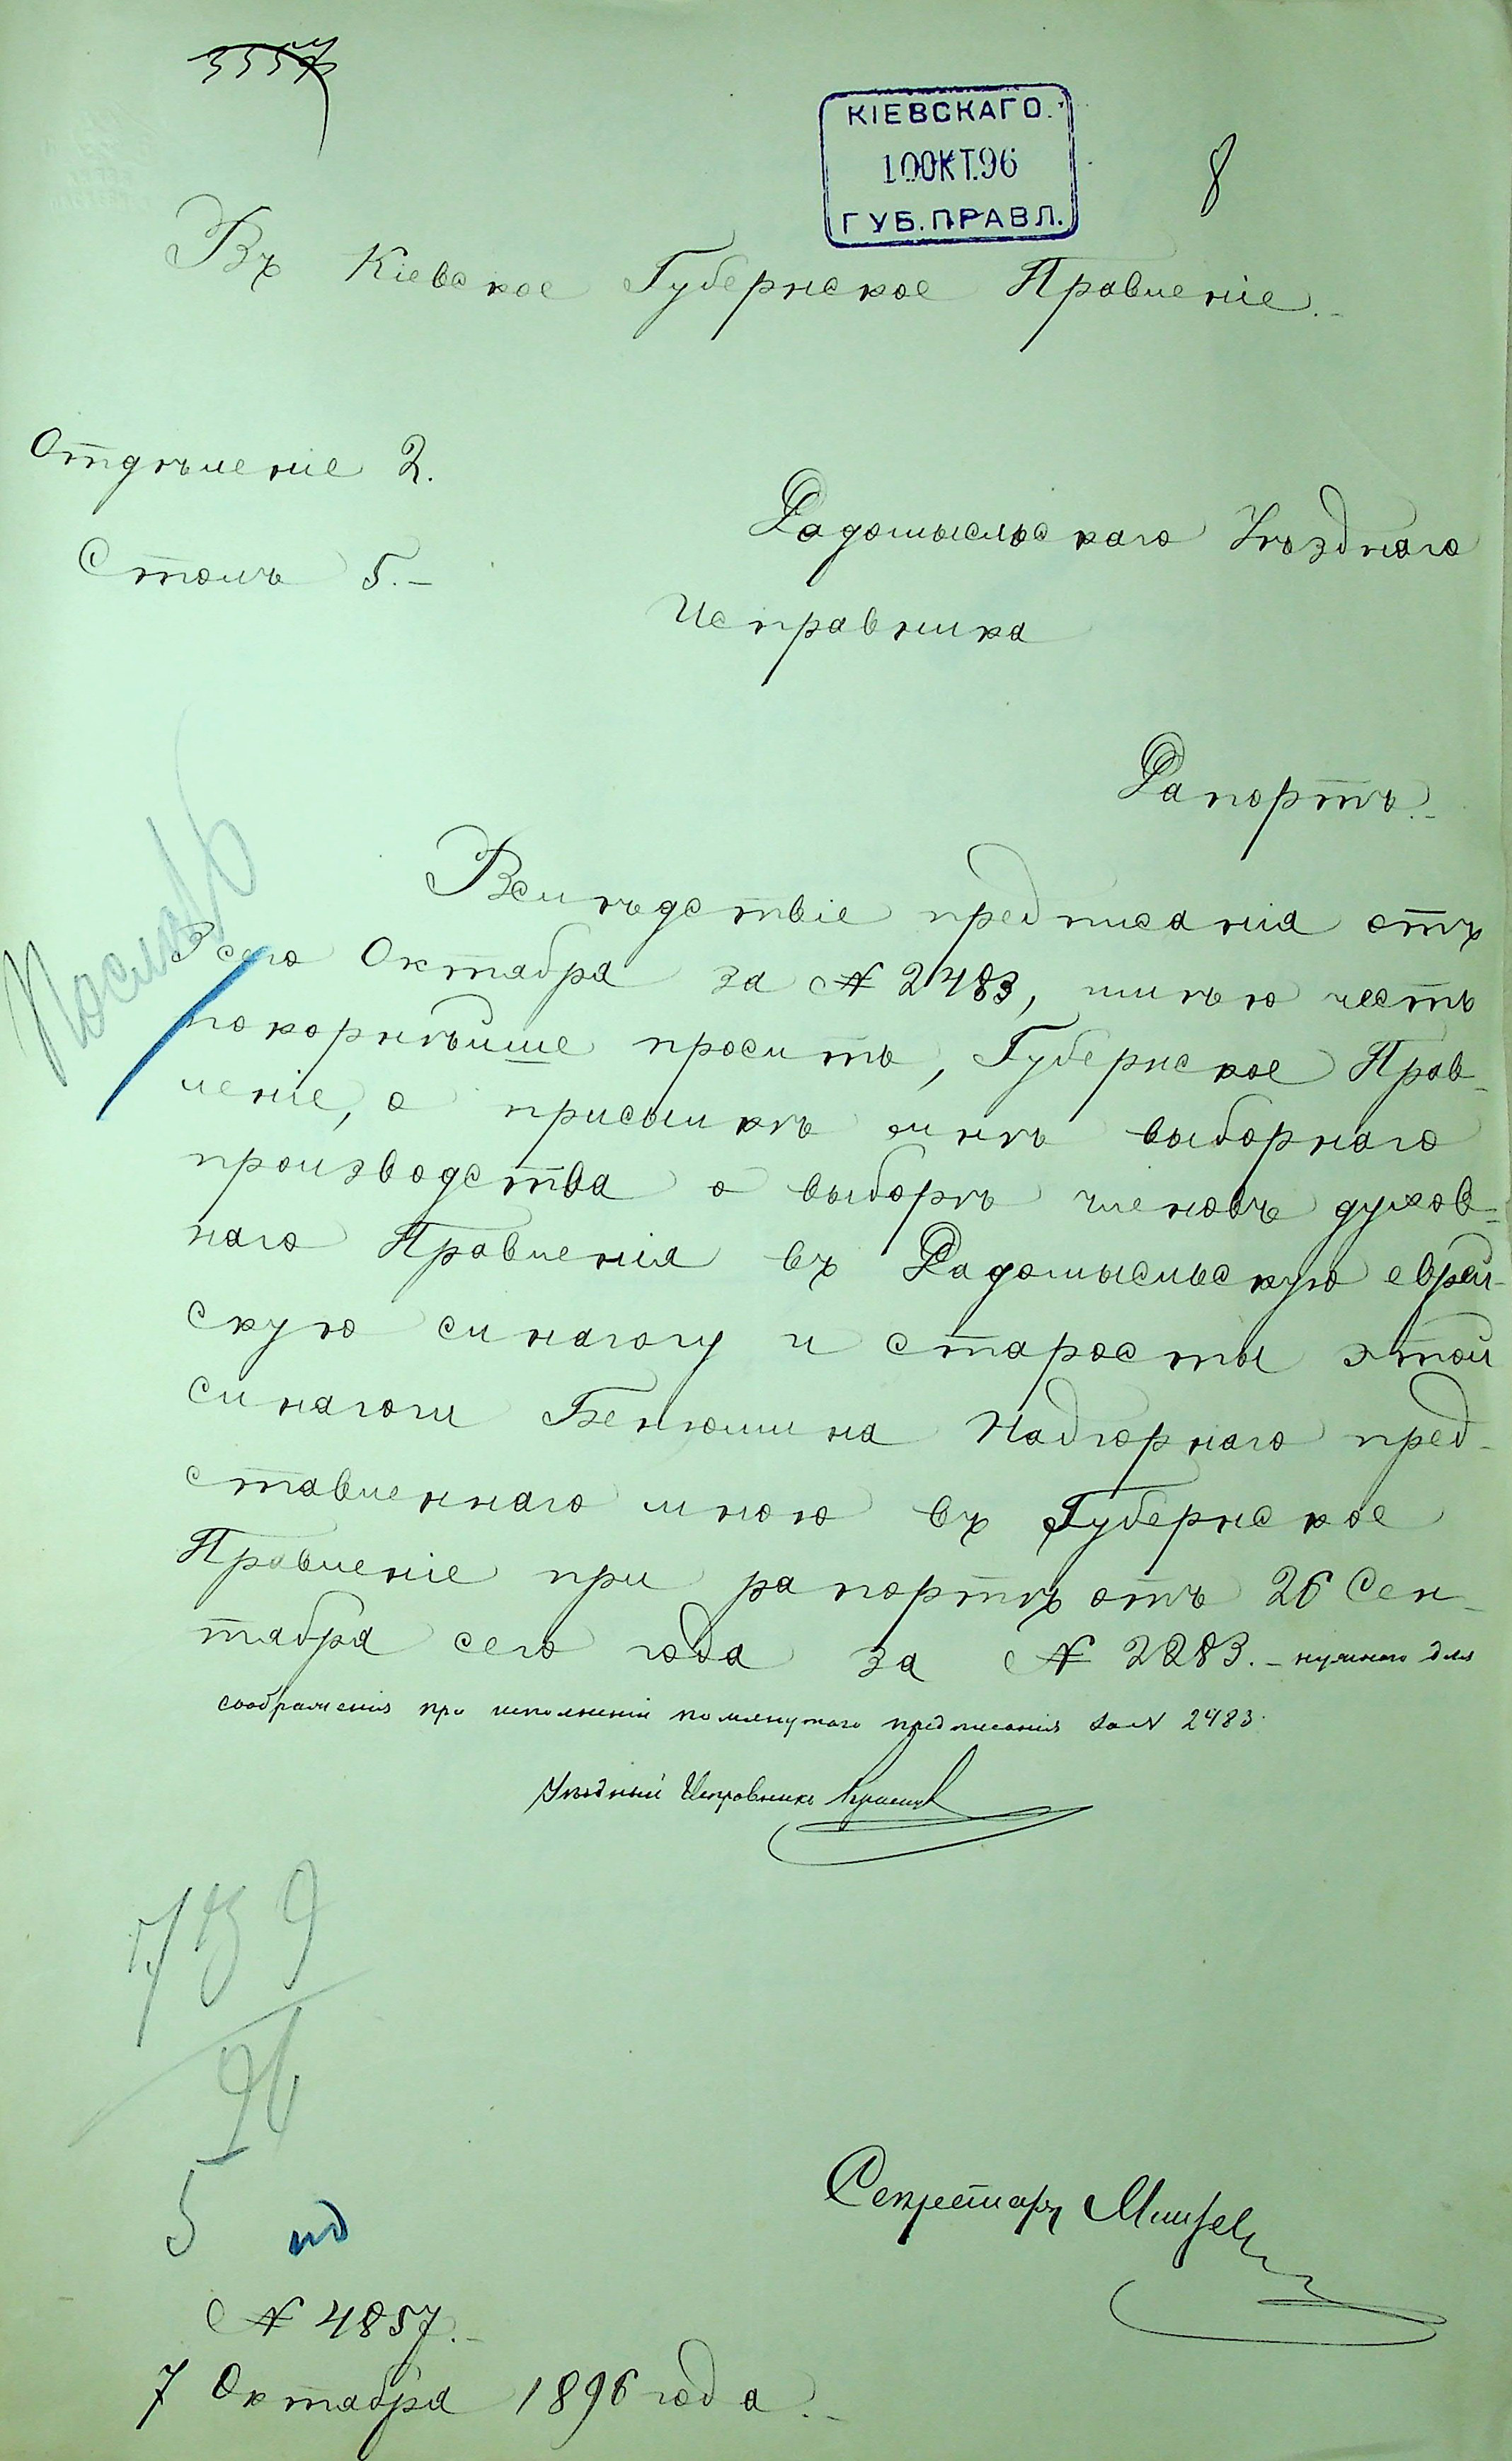 КІЕВСКАГО.
10 ОКТ.96
ГУБ.ПРАВЛ.
8
Въ Кіевское Губернское Правленіе.
Отдѣленіе 2.
Столъ 5.
Радомысльскаго Уѣзднаго
Исправника
Рапортъ.
Вслѣдствіе предписанія отъ
3 сего Октября за № 2483, имѣю честь
покорнѣйше просить, Губернское Прав-
леніе, о присылкѣ мнѣ выборнаго
производства о выборѣ членовъ духов-
наго Правленія въ Радомысльскую еврей-
скую синагогу и старосты этой
синагоги Бенюмина Надгорнаго пред-
ставленнаго мною въ Губернское
Правленіе при рапортѣ отъ 26 Сен-
тября сего года за № 2283. нужнаго для
соображенія при исполненіи помянутаго предписанія за № 2483.
Уѣздный Исправникъ
739
96
5
Секретарь
№ 4857.
7 Октября 1896 года.